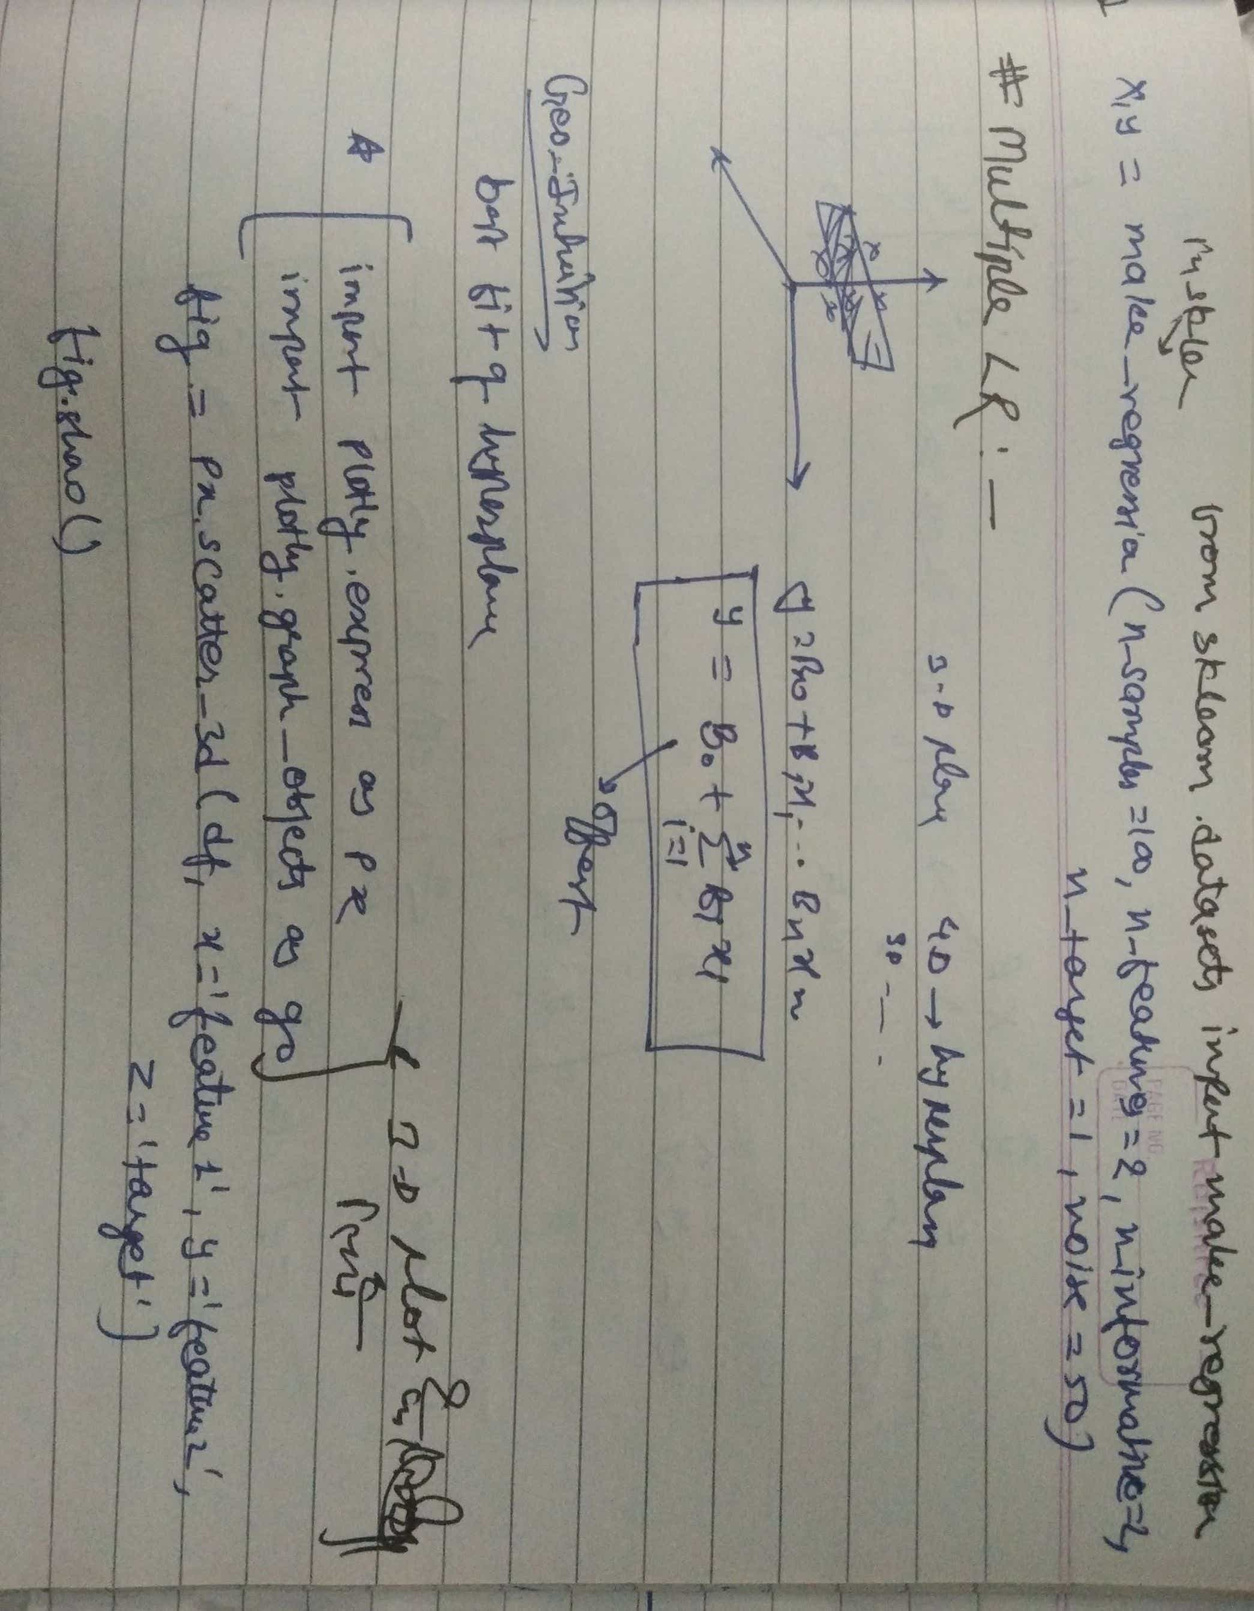 from sklearn.datasets import make_regression
x,y = make_regression (n_samples=100, n_features=2, n_informative=2,
n_target=1, noise=50)
# Multiple LR :-
3-D plan 4D → hyperplan
3D -- .
y = B0 + B1x1... Bnxn
y = B0 + n∑i=1 Bixi
→ offset
Geo-Intuition
best fit of hyperplane
import plotly.express as px
import plotly.graph_objects as go
fig = px.scatter_3d(df, x='feature1', y='feature2',
z='target')
fig.show()